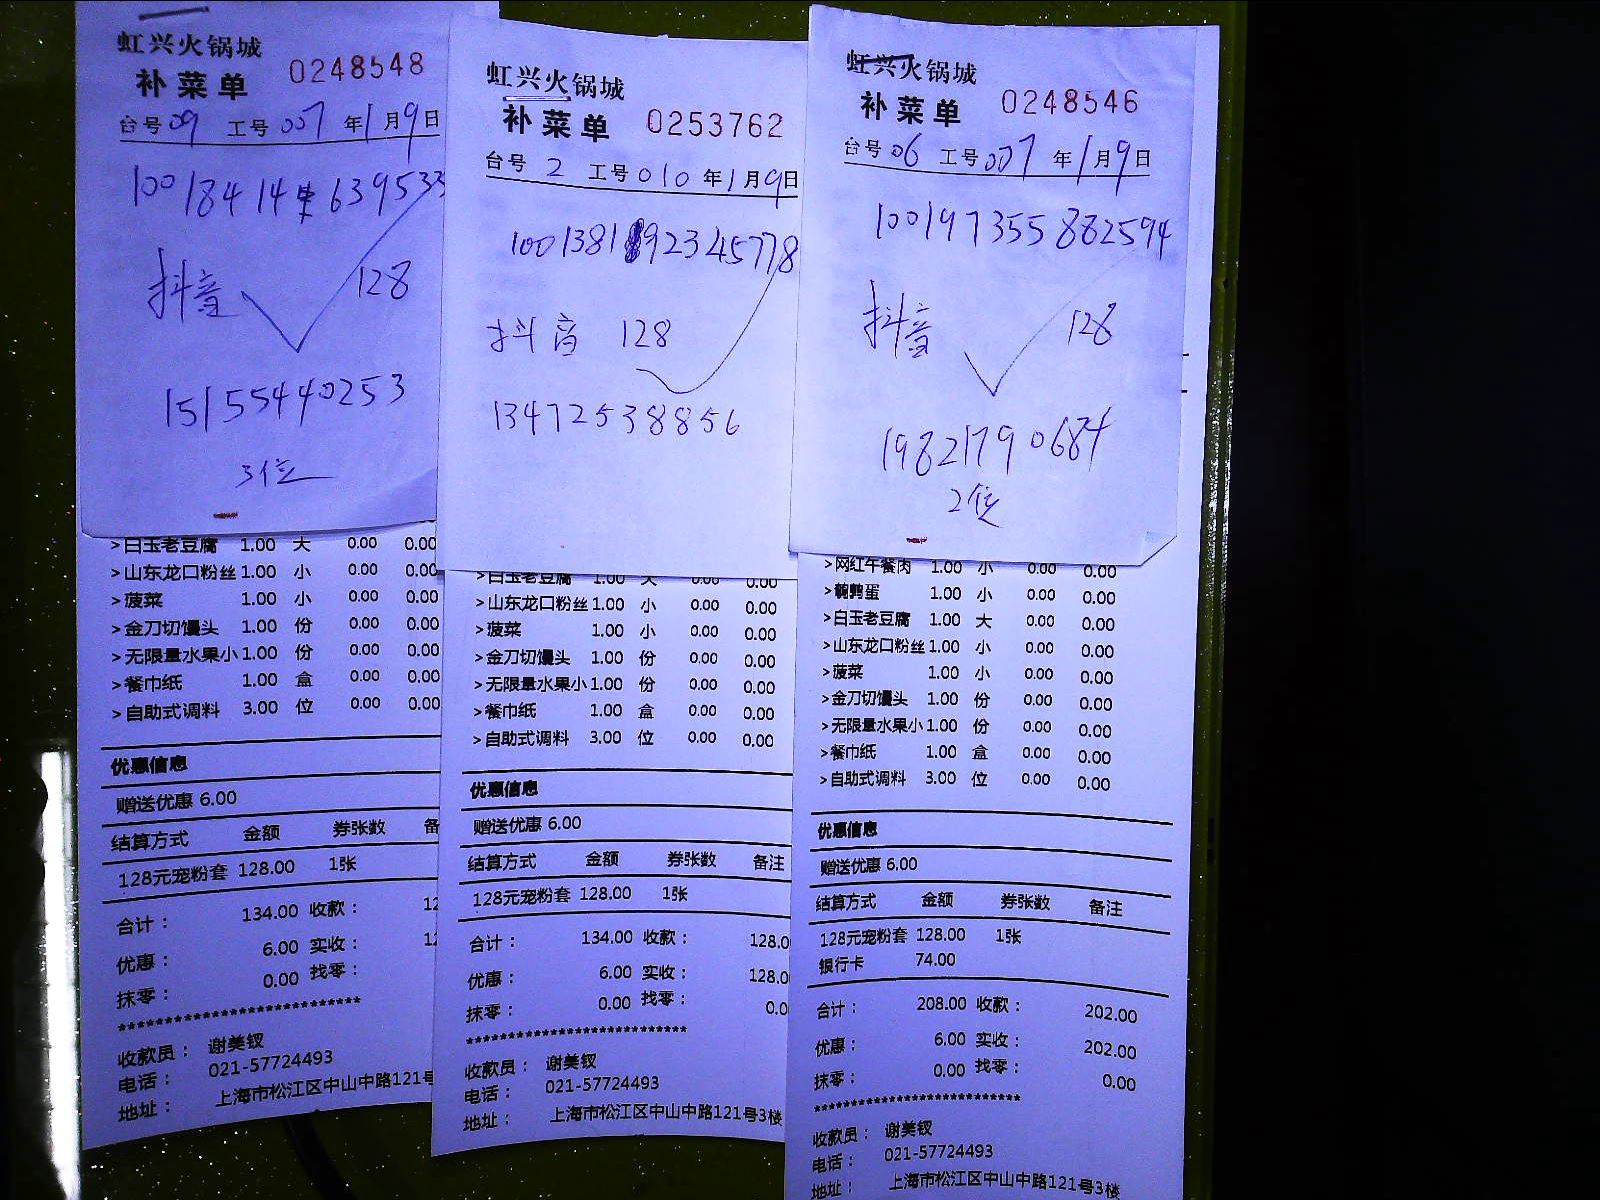 虹兴火锅城
补菜单 0248548
台号 09 工号 007 年1月9日
抖音 128
15155440253
3位
>白玉老豆腐 1.00 大 0.00 0.00
>山东龙口粉丝 1.00 小 0.00 0.00
>菠菜 1.00 小 0.00 0.00
>金刀切馒头 1.00 份 0.00 0.00
>无限量水果小 1.00 份 0.00 0.00
>餐巾纸 1.00 盒 0.00 0.00
>自助式调料 3.00 位 0.00 0.00
优惠信息
赠送优惠 6.00
结算方式 金额 券张数 备
128元宠粉套 128.00 1张
合计： 134.00 收款： 12
优惠： 6.00 实收： 12
抹零： 0.00 找零：
***************************
收款员： 谢美钗
电话： 021-57724493
地址： 上海市松江区中山中路121号
虹兴火锅城
补菜单 0253762
台号 2 工号 010 年1月9日
1001381 92345778
抖音 128
13472538856
>白玉老豆腐 1.00 大 0.00 0.00
>山东龙口粉丝 1.00 小 0.00 0.00
>菠菜 1.00 小 0.00 0.00
>金刀切馒头 1.00 份 0.00 0.00
>无限量水果小 1.00 份 0.00 0.00
>餐巾纸 1.00 盒 0.00 0.00
>自助式调料 3.00 位 0.00 0.00
优惠信息
赠送优惠 6.00
结算方式 金额 券张数 备注
128元宠粉套 128.00 1张
合计： 134.00 收款： 128.0
优惠： 6.00 实收： 128.0
抹零： 0.00 找零： 0.0
***************************
收款员： 谢美钗
电话： 021-57724493
地址： 上海市松江区中山中路121号3楼
虹兴火锅城
补菜单 0248546
台号 06 工号 007 年1月9日
100197355882594
抖音 128
19821790684
2位
>网红午餐肉 1.00 小 0.00 0.00
>鹌鹑蛋 1.00 小 0.00 0.00
>白玉老豆腐 1.00 大 0.00 0.00
>山东龙口粉丝 1.00 小 0.00 0.00
>菠菜 1.00 小 0.00 0.00
>金刀切馒头 1.00 份 0.00 0.00
>无限量水果小 1.00 份 0.00 0.00
>餐巾纸 1.00 盒 0.00 0.00
>自助式调料 3.00 位 0.00 0.00
优惠信息
赠送优惠 6.00
结算方式 金额 券张数 备注
128元宠粉套 128.00 1张
银行卡 74.00
合计： 208.00 收款： 202.00
优惠： 6.00 实收： 202.00
抹零： 0.00 找零： 0.00
***************************
收款员： 谢美钗
电话： 021-57724493
地址： 上海市松江区中山中路121号3楼